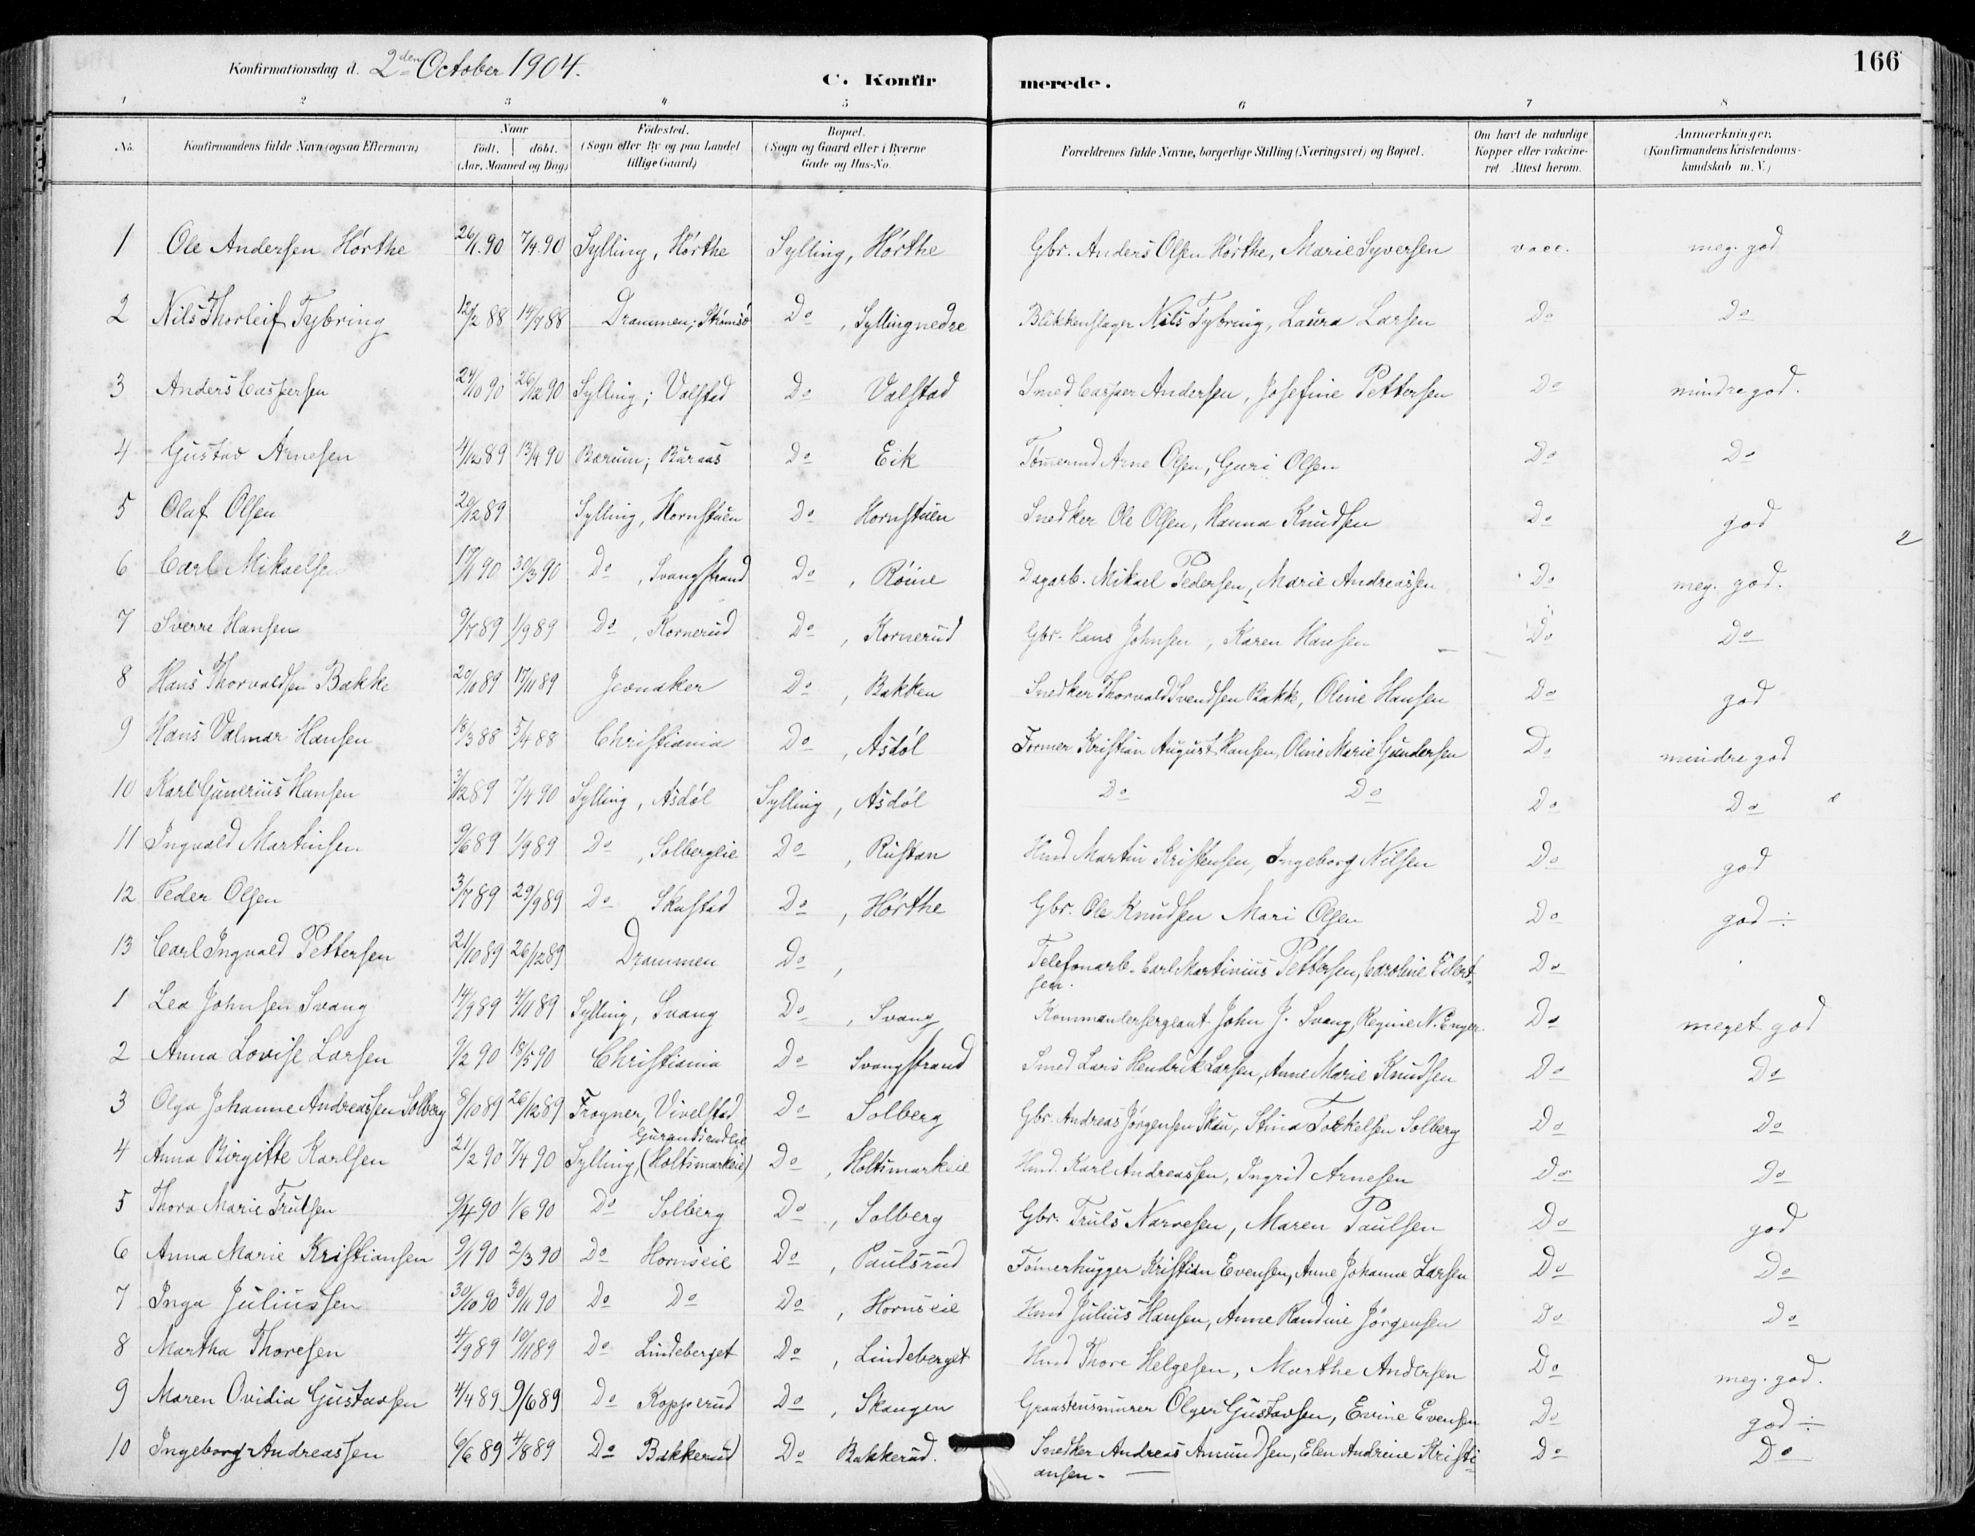 Konfirmationsdag d. 2den October 1904.
C. Konfir merede. 166
1 2 3 4 5 6 7 8
No. Konfirmandens fulde Navn (ogsaa Efternavn) Naar födt. döbt. (Aar, Maaned og Dag) Födested. (Sogn eller By og paa Landet tillige Gaard) Bopæl. (Sogn og Gaard eller i Byerne Gade og Hus-No. Forældrenes fulde Navne, borgerlige Stilling (Næringsvei) og Bopæl. Om havt de naturlige Kopper eller vakcineret Attest herom. Anmærkninger. (Konfirmandens Kristendomskundskab m. V.)
1 Ole Andersen Hörthe 26/1.90 7/4 90 Sylling, Hörthe Sylling, Hörthe Gbr. Anders Olsen Hörthe, Marie Syversen vacc. meg. god
2 Nils Thorleif Tybring 12/2 88 14/7 88 Drammen; Strömsö Do, Sylling nedre Blikkenslager Nils Tybring, Laura Larsen Do Do
3 Anders Caspersen 24/10 90 26/12 90 Sylling; Valstad Do Valstad Smed Casper Andersen, Josefine Pettersen Do mindre god.
4 Gustav Arnesen 4/12 89 13/4 90 Bærum; Buraas Do Eik Arne Olsen, Guri Olsen Do Do
5 Olaf Olsen 20/12 89 Sylling, Hornstuen Do Hornstuen Snedker Ole Olsen, Hanna Knudsen Do god
6 Carl Mikaelsen 17/1 90 30/3 90 Do, Svangstrand Do, Röine Dagarb. Mikael Pedersen, Marie Andreassen Do meg. god.
7 Sverre Hansen 9/7 89 1/9 89 Do, Kornerud Do, Kornerud Gbr. Hans Johnsen, Karen Hansen Do Do
8 Hans Thorvaldsen Bakke 20/10 89 17/11 89 Jevnaker Do, Bakken Snedker Thorvald Svendsen Bakke, Oline Hansen Do god
9 Hans Valmar Hansen 18/3 88 5/4 88 Christiania Do, Asdöl Former Kristian August Hansen, Oline Marie Gundersen Do mindre god
10 Karl Gunerius Hansen 3/12 89 7/4 90 Sylling, Asdöl Sylling, Asdöl Do Do Do Do
11 Ingvald Martinsen 9/6 89 1/9 89 Do, Solberglie Do, Rustan Hmd Martin Kristensen, Ingeborg Nilsen Do god
12 Peder Olsen 3/7 89 29/9 89 Do Skustad Do, Hörthe Gbr. Ole Knudsen Mari Olsen Do god ÷
13 Carl Ingvald Pettersen 21/10 89 26/12 89 Drammen Do, Telefonarb. Carl Martinius Pettersen, Caroline Eilertsen. Do
1 Lea Johnsen Svang 14/9 89 4/11 89 Sylling, Svang Do, Svang Kommandersergeant John J. Svang, Regine N. Enger. Do meget god
2 Anna Lovise Larsen 9/2 90 18/5 90 Christiania Do Svangstrand Smed Lars Hendrik Larsen, Anne Marie Knudsen Do Do
3 Olga Johanne Andreassen Solberg 8/10 89 26/12 89 Frogner, Vivelstad Do Solberg Gbr. Andreas Jörgensen Skau, Stina Torkelsen Solberg Do Do
4 Anna Birgitte Karlsen 21/2 90 7/4 90 Sylling, (Holtsmarkeie) Do, Holtsmarkeie Hmd. Karl Andreassen, Ingrid Arnesen Do Do
5 Thora Marie Trulsen 9/4 90 1/6 90 Do Solberg Do, Solberg Gbr. Truls Narvesen, Maren Paulsen Do god
6 Anna Marie Kristiansen 9/1 90 2/3 90 Do Hornseie Do, Paulsrud Tömerhugger Kristian Evensen, Anne Johanne Larsen Do Do
7 Inga Juliussen 30/10 90 30/11 90 Do Do Do, Hornseie Hmd Julius Hansen, Anne Randine Jörgensen Do Do
8 Martha Thoresen 4/9 89 10/11 89 Do Lindeberget Do, Lindeberget Hmd Thore Helgesen, Marthe Andersen Do meg. god.
9 Maren Ovidia Gustavsen 4/4 89 9/6 89 Do Kopperud Do, Skaugen Graastensmurer Olger Gustavsen, Evine Evensen Do god ÷
10 Ingeborg Andreassen 6/6 89 4/8 89 Do Bakkerud Do Bakkerud. Snedker Andreas Amundsen, Elen Andrine Kristiansen. Do Do